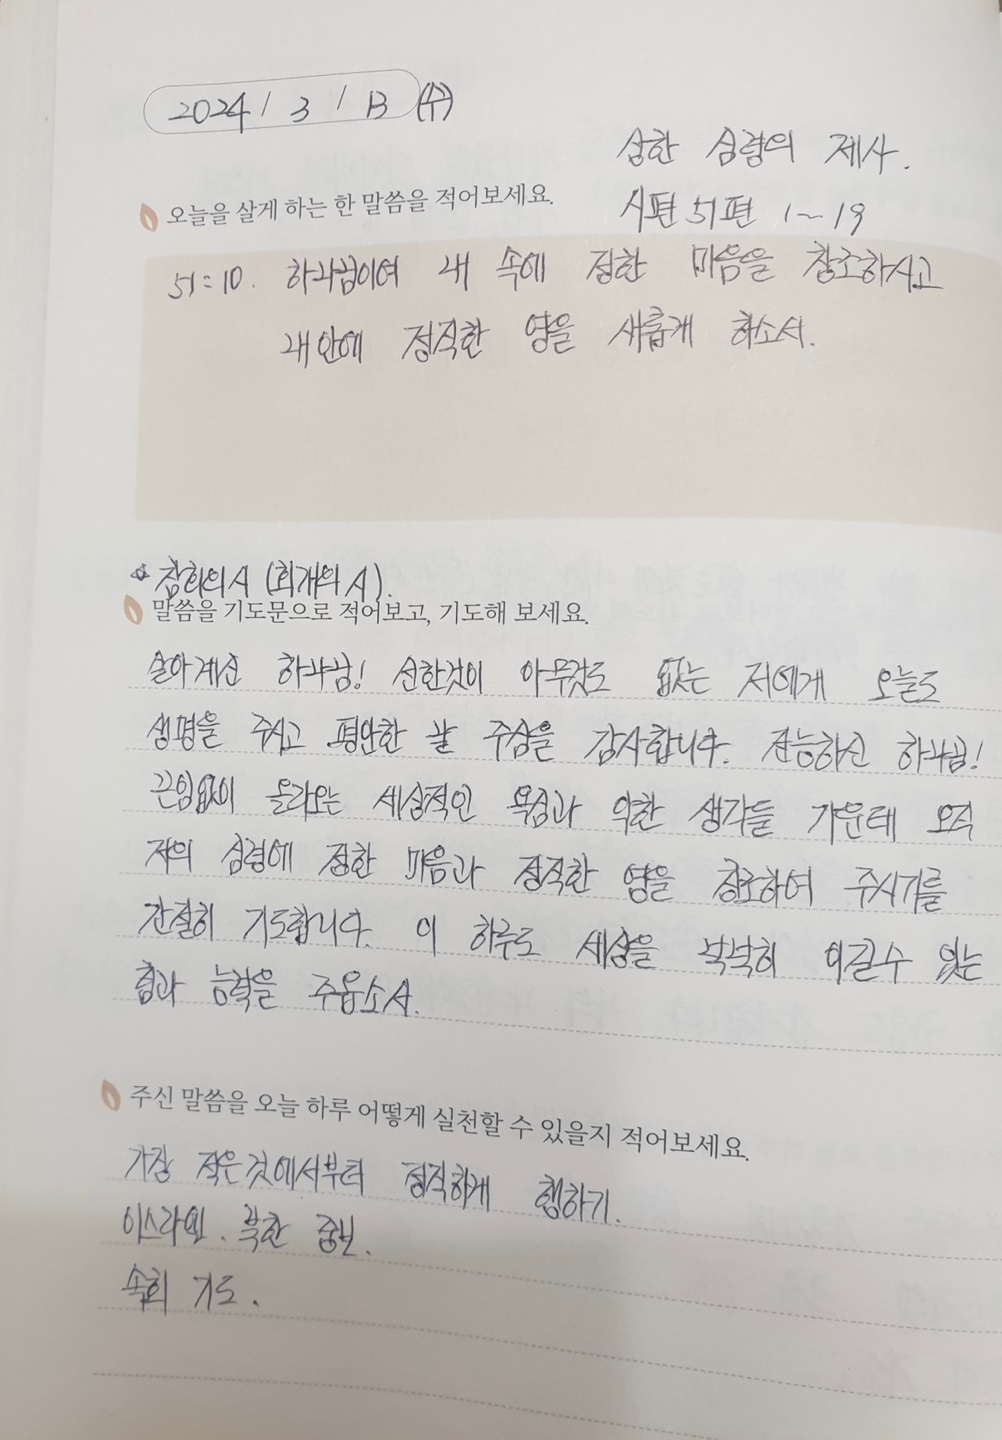 2024 / 3 / 13 (수)
상한 심령의 제사.
오늘을 살게 하는 한 말씀을 적어보세요.
시편 51편 1~19
51:10. 하나님이여 내 속에 정한 마음을 창조하시고
내 안에 정직한 영을 새롭게 하소서.
참회의 시 (회개의 시).
말씀을 기도문으로 적어보고, 기도해 보세요.
살아계신 하나님! 선한것이 아무것도 없는 저에게 오늘도
생명을 주시고 평안한 삶 주심을 감사합니다. 전능하신 하나님!
끈임없이 올라오는 세상적인 욕심과 악한 생각들 가운데 오직
저의 심령에 정한 마음과 정직한 영을 창조하여 주시기를
간절히 기도합니다. 이 하루도 세상을 넉넉히 이길수 있는
힘과 능력을 주옵소서.
주신 말씀을 오늘 하루 어떻게 실천할 수 있을지 적어보세요.
가장 작은것에서부터 정직하게 행하기.
이스라엘. 북한 중보.
속회 기도.